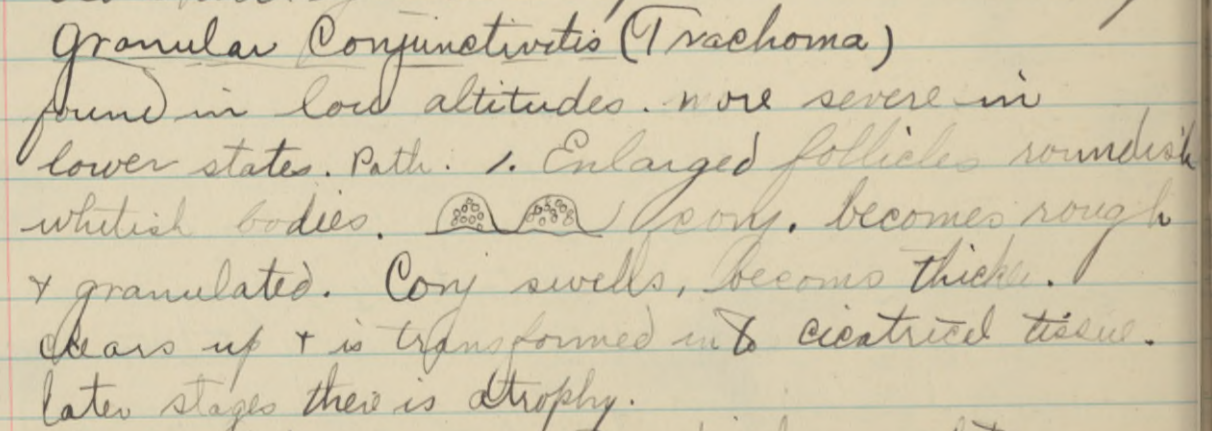 Granular Conjunctivitis (Trachoma)
found in low altitudes. more severe in
lower states. Path. 1. Enlarged follicles roundish
whitish bodies. conj. becomes rough
+ granulated. Conj swells, becoms thicker.
clears up + is transformed into cicatrical tissue.
later stages there is atrophy.